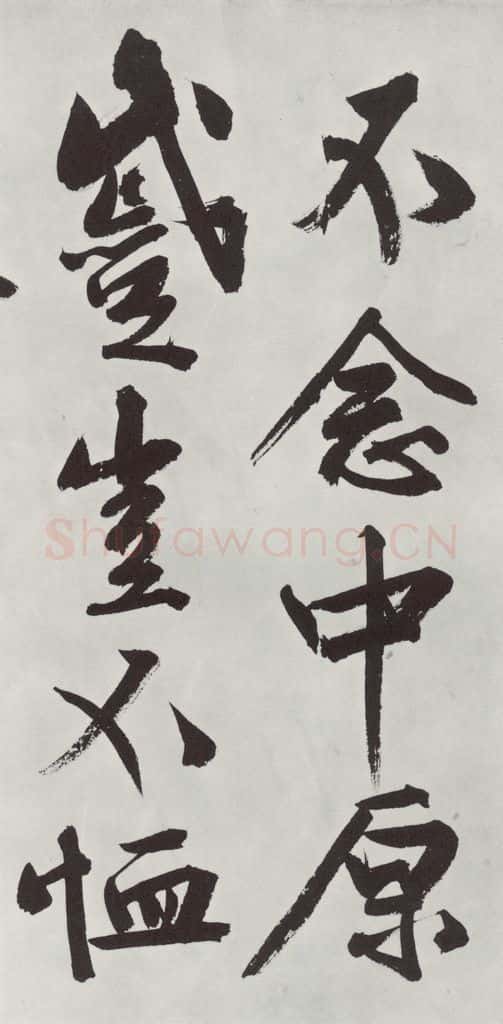 不念中原
蹙豈不恤
Shufawang.CN